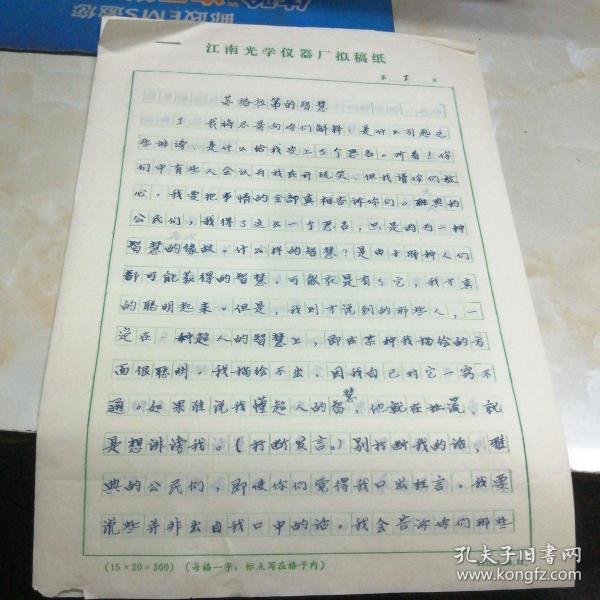 邮政EMS
江南光学仪器厂拟稿纸
第 1 页
苏格拉第的智慧
1 我将尽量向你们解释,是什么引起这
些诽谤、是什么给我安上了个恶名。听着!你
们中有些人会认为我在开玩笑。但我请你们放
心,我是把事情的全部真相告诉你们。雅典的
公民们,我得了这么一个恶名,只是因为一种
智慧的缘故。什么样的智慧?是由于那种人们
都可能获得的智慧。可能就是有了它,我才真
的聪明起来。但是,我刚才说到的那些人,一
定在 种超人的智慧上,即在某种我描绘的方
面很聪明。我描绘不出、因我自己对它一窍不
通。如果谁说我懂超人的智慧,他就在扯谎,就
是想诽谤我。(打断发言。)别打断我的话,雅
典的公民们,即使你们觉得我口出狂言。我要
说些并非出自我口中的话。我会告诉你们那些
(15×20=300)(每格一字,标点写在格子内)
孔夫子旧书网
www.kongfz.com